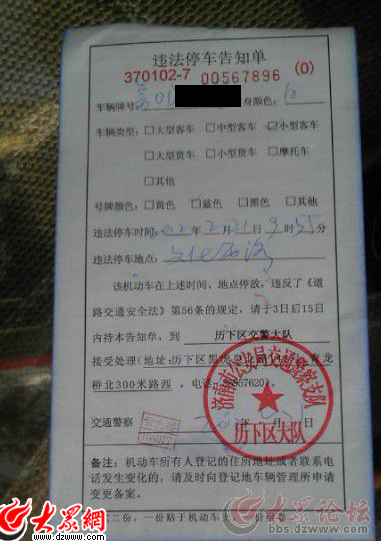 违法停车告知单
370102-7 00567896 (0)
车辆牌号 身颜色: 白
车辆类型: □大型客车 □中型客车 ☑小型客车
□大型货车 □小型货车 □摩托车
□其他
号牌颜色: □黄色 □蓝色 □黑色 □其他
违法停车时间: 年2月21日9时55分
违法停车地点: 文化西路
该机动车在上述时间、地点停放,违反了《道
路交通安全法》第56条的规定,请于3日后15日
内持本告知单,到 历下区交警大队
接受处理(地址:历下区黑虎泉 龙
桥北300米路西,电话: 57620)。
交通警察 日
济南市公安局交通警察支队
历下区大队
备注:机动车所有人登记的住所地址或者联系电
话发生变化的,请及时向登记地车辆管理所申请
变更备案。
二份,一份贴于机动车
大众网
www.dzwww.com
大众论坛
bbs.dzwww.com